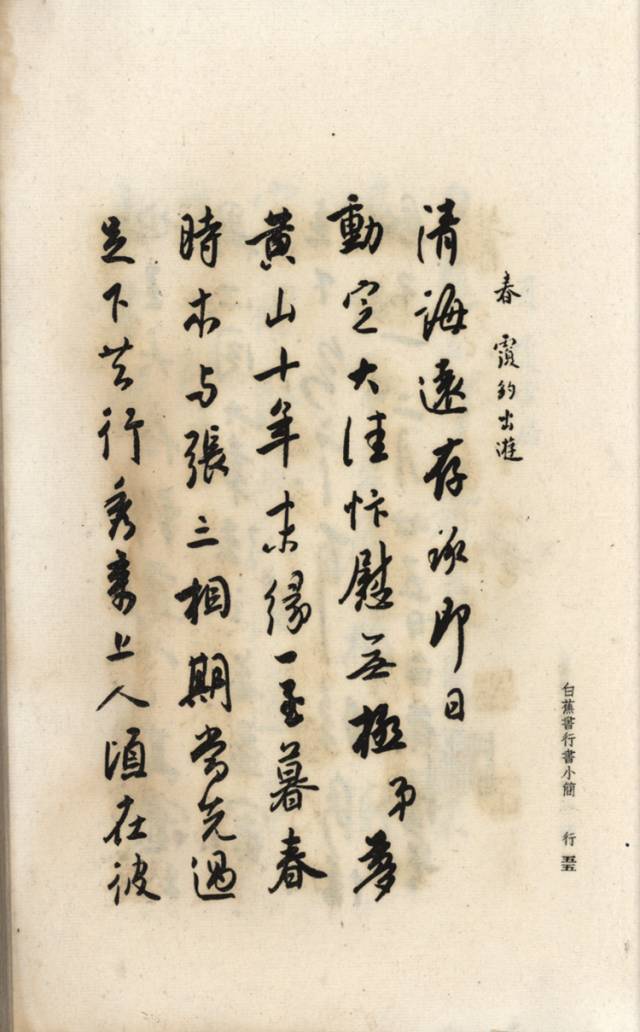 白蕉書行書小簡 行 五五
春 霞約出遊
清誨遠存承即日
動定大佳忭慰无極弟夢
黃山十年未緣一至暮春
時本与張三相期當先過
足下共行秀上人頃在彼